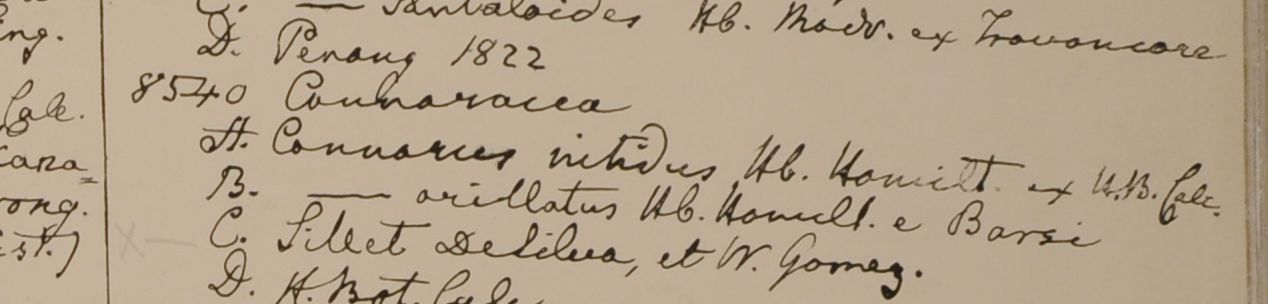 C. — Santaloides Hb. Madr. ex Travancore
D. Penang 1822
8540 Connaracea
A. Connarus nitidus Hb. Hamilt. ex H.B. Calc.
B. — arillatus Hb. Hamilt. e Barsi
C. Sillet DeSilva, et W. Gomez.
D. H. Bot. Calc
ng.
Calc.
Cana=
rong.
ist.)